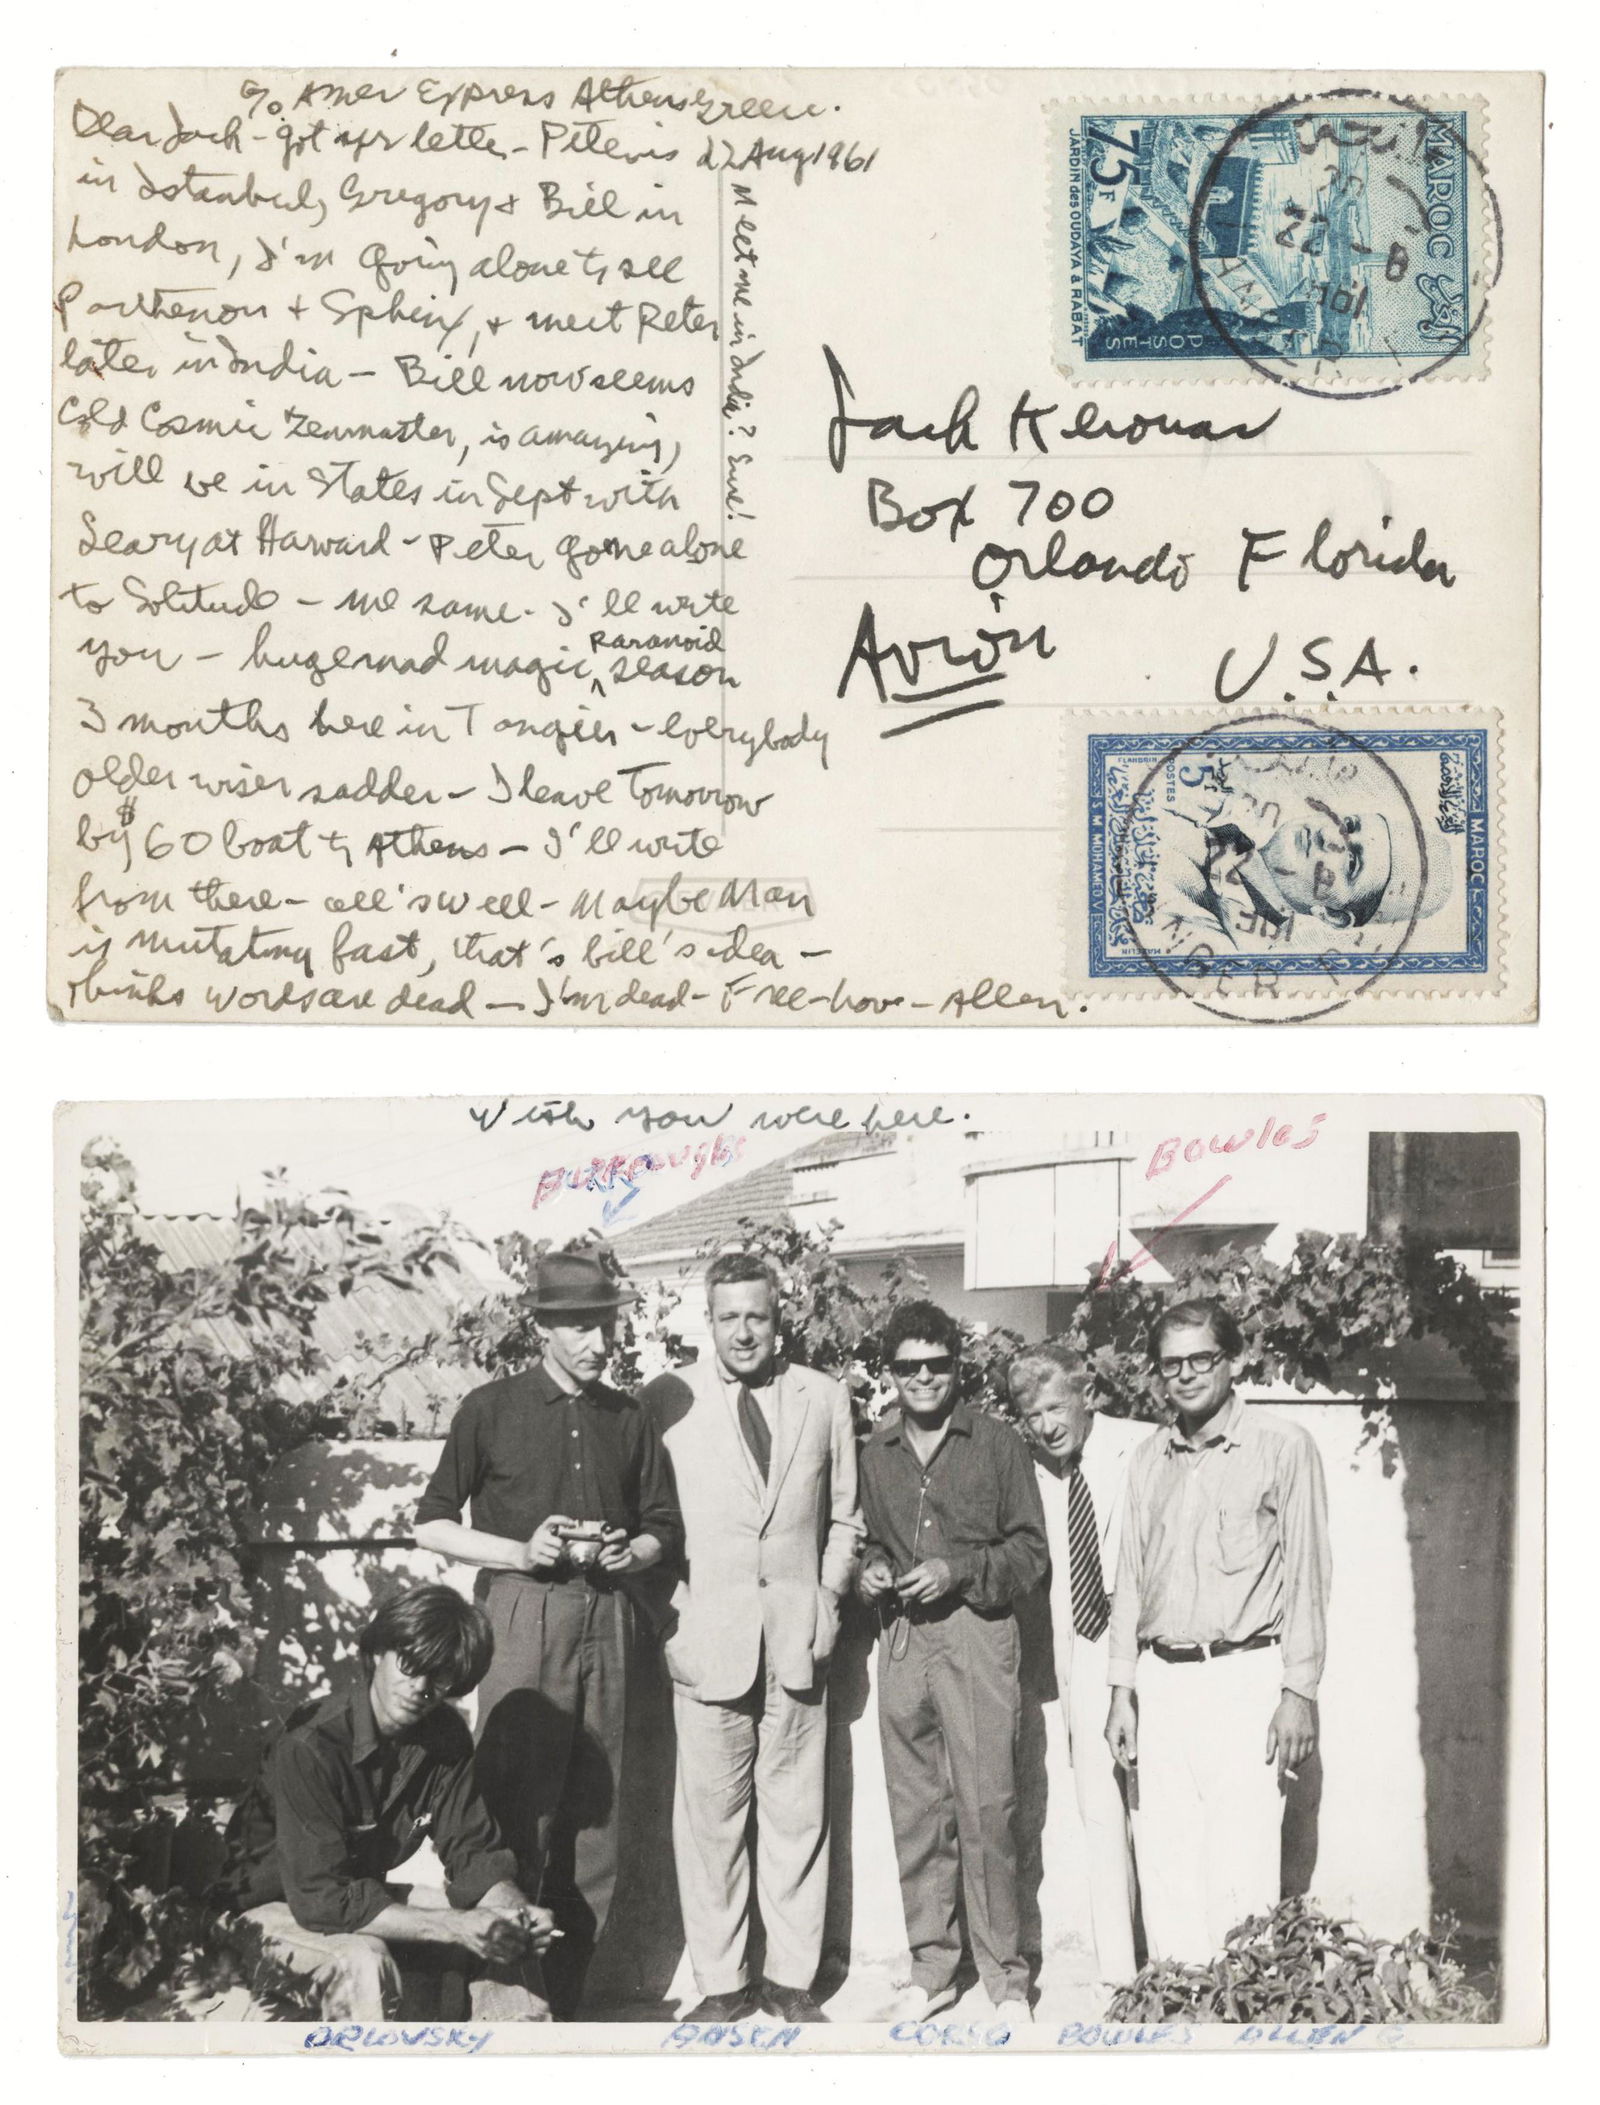 c/o Amer Express Athens Greece.
Dear Jack - got yr letter - Peter is 22 Aug 1961
in Istanbul, Gregory & Bill in
London, I'm going alone to see
Parthenon + Sphinx, & meet Peter
later in India - Bill now seems
Cold Cosmic Zenmaster, is amazing,
will be in States in Sept with
Leary at Harvard - Peter gone alone
to Solitude - me same. I'll write
you - huge mad magic paranoid season
3 months here in Tangier - everybody
older wiser sadder - I leave Tomorrow
by $60 boat to Athens - I'll write
from there - all's well - Maybe Man
is mutating fast, that's bill's idea -
thinks words are dead - I'm dead - Free - Love - Allen.
Meet me in India? Sure!
Jack Kerouac
Box 700
Orlando Florida
Avion
U.S.A.
MAROC
المغرب
75F
POSTES
JARDIN des OUDAYA à RABAT
22 - 8
MAROC
5F
POSTES
FLANDRIN
MAZELIN
S M MOHAMED V
22 - 8
TANGER
Wish you were here.
BURROUGHS
BOWLES
ORLOVSKY ANSEN CORSO BOWLES ALLEN G